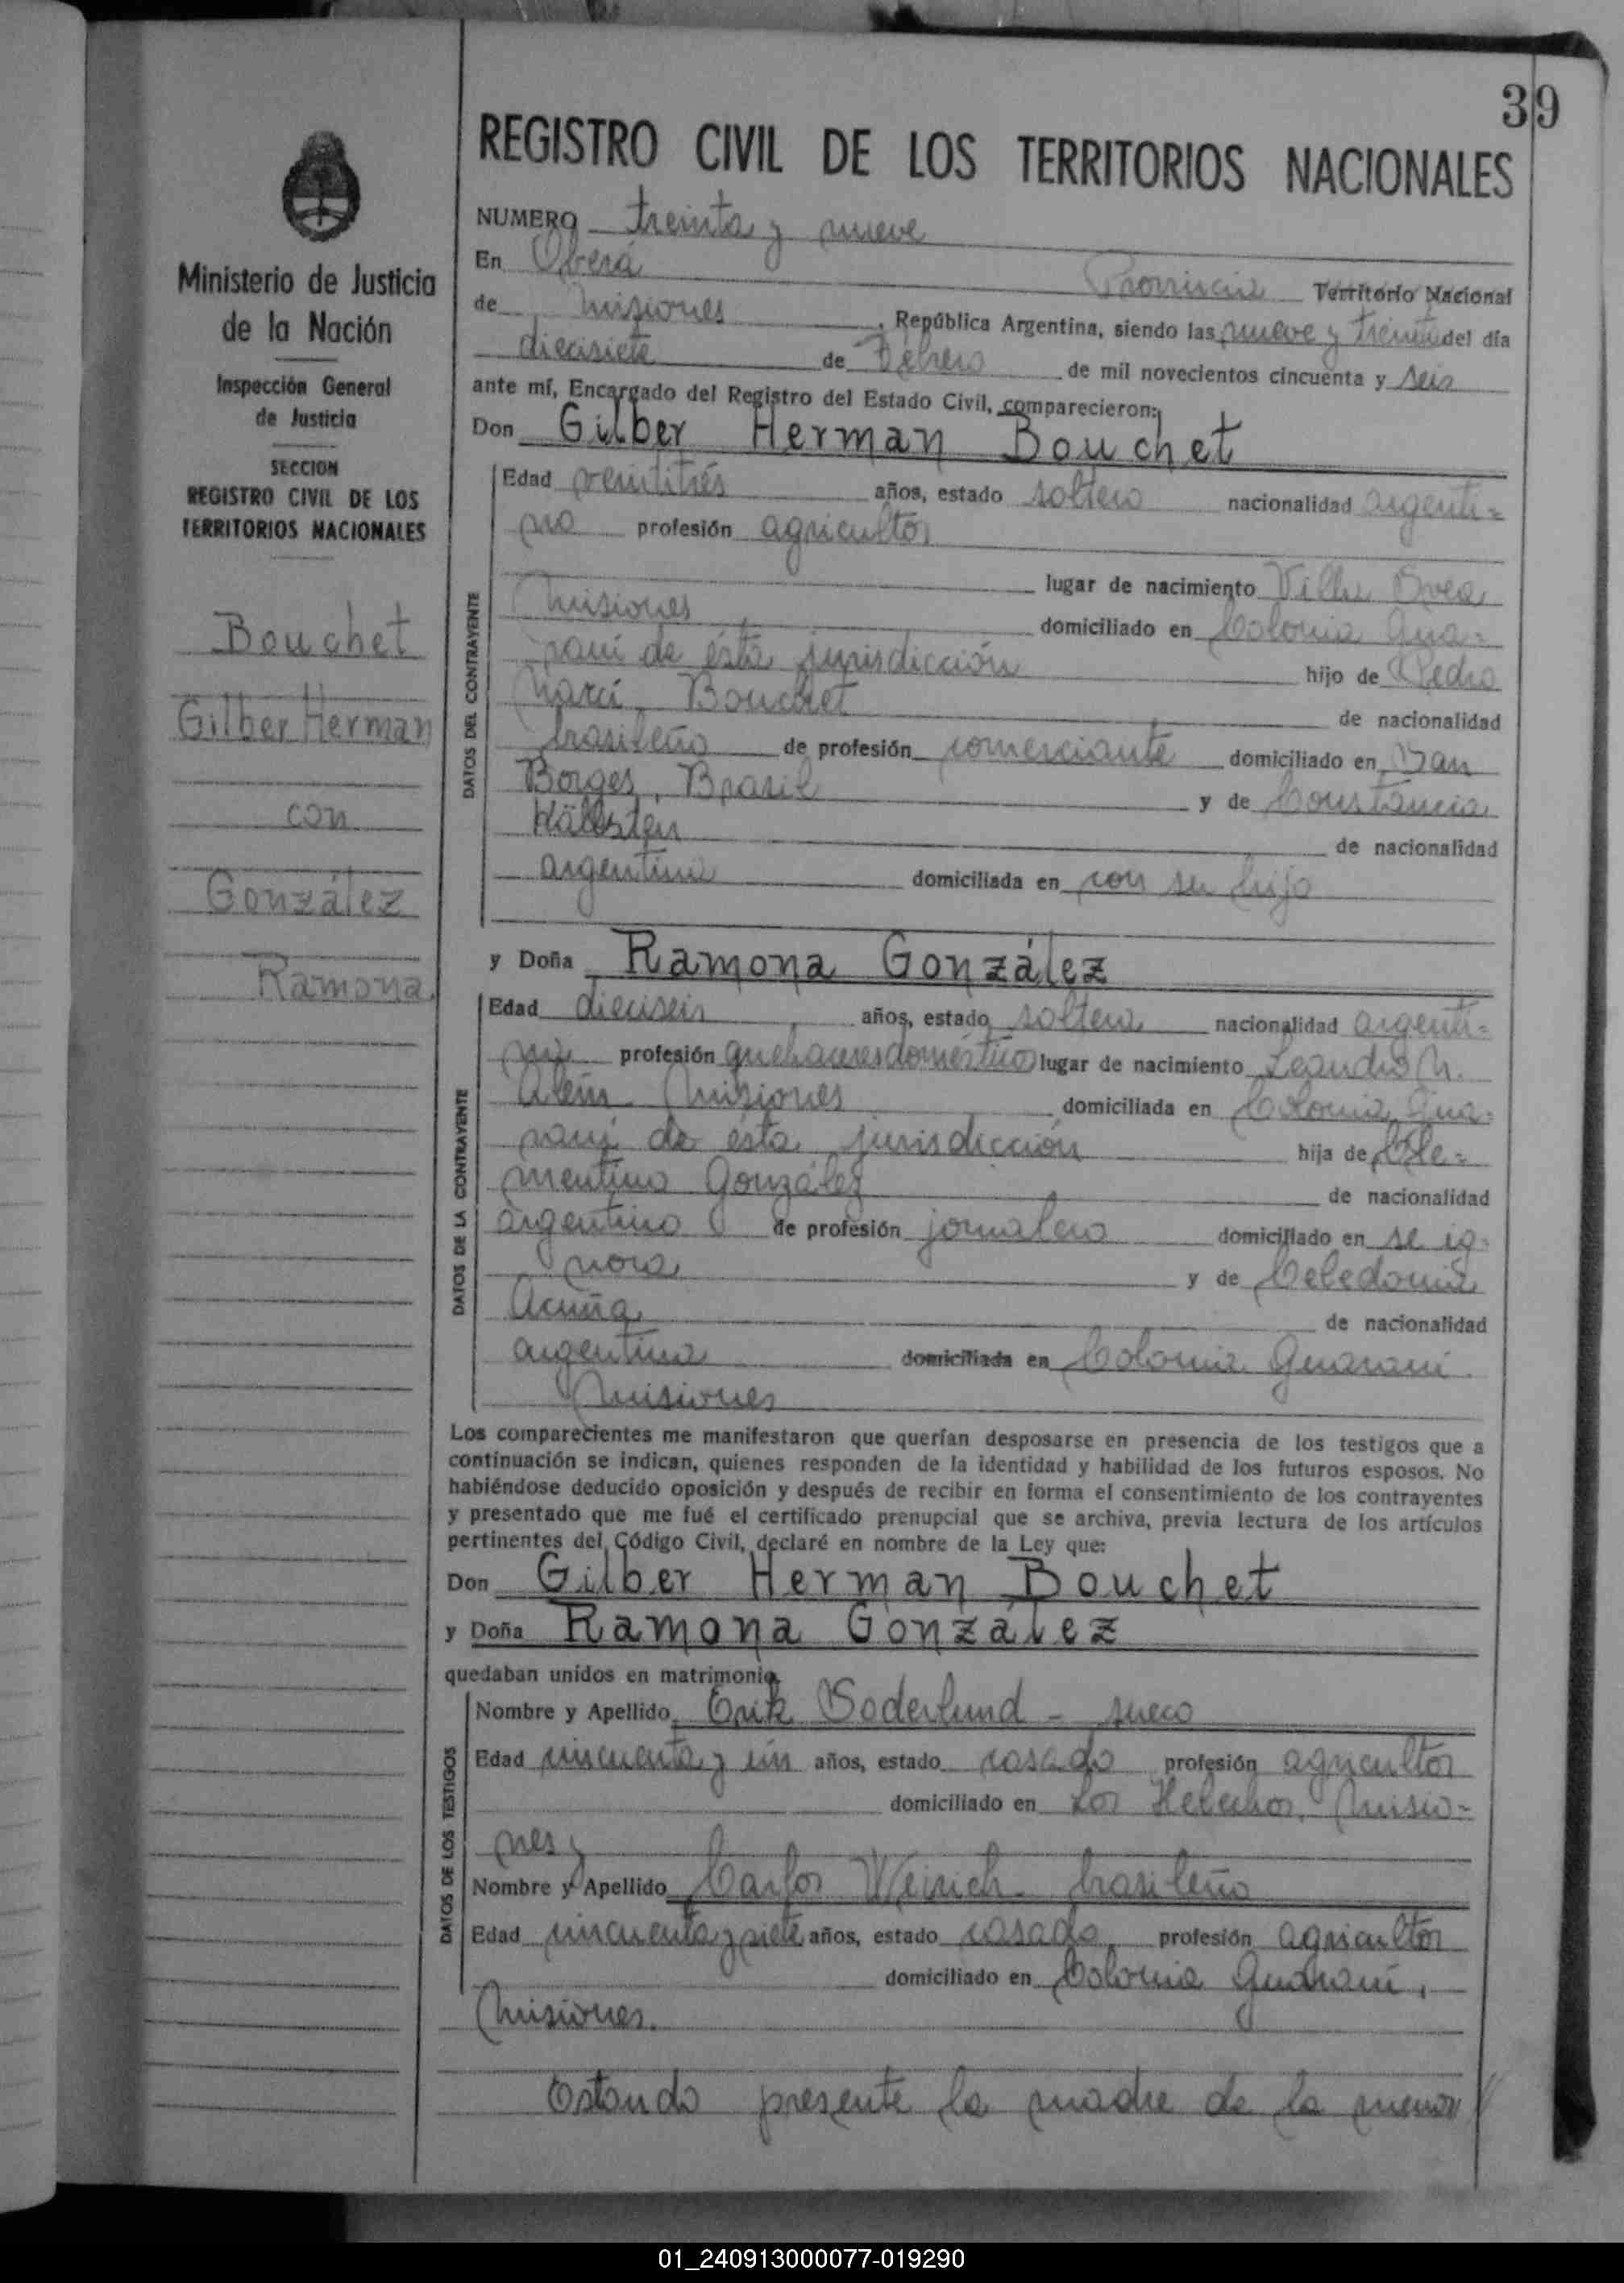 39
REGISTRO CIVIL DE LOS TERRITORIOS NACIONALES
Ministerio de Justicia
de la Nación
Inspección General
de Justicia
SECCION
REGISTRO CIVIL DE LOS
TERRITORIOS NACIONALES
Bouchet
Gilber Herman
con
González
Ramona.
NUMERO treinta y nueve
En Oberá Provincia Territorio Nacional
de Misiones, República Argentina, siendo las nueve y treinta del día
diecisiete de Febrero de mil novecientos cincuenta y seis
ante mí, Encargado del Registro del Estado Civil, comparecieron:
Don Gilber Herman Bouchet
DATOS DEL CONTRAYENTE
Edad veintitrés años, estado soltero nacionalidad argenti=
no profesión agricultor
lugar de nacimiento Villa Svea
Misiones domiciliado en Colonia Gua=
raní de ésta jurisdicción hijo de Pedro
Marcí Bouchet de nacionalidad
brasileño de profesión comerciante domiciliado en San
Borges, Brasil y de Constancia
Källsten de nacionalidad
argentina domiciliada en con su hijo
y Doña Ramona González
DATOS DE LA CONTRAYENTE
Edad dieciseis años, estado soltera nacionalidad argenti=
na profesión quehaceres domésticos lugar de nacimiento Leandro N.
Alem Misiones domiciliada en Colonia Gua=
raní de ésta jurisdicción hija de Cle=
mentino González de nacionalidad
argentino de profesión jornalero domiciliado en se ig=
nora y de Celedonia
Acuña de nacionalidad
argentina domiciliada en Colonia Guaraní.
Misiones
Los comparecientes me manifestaron que querían desposarse en presencia de los testigos que a
continuación se indican, quienes responden de la identidad y habilidad de los futuros esposos. No
habiéndose deducido oposición y después de recibir en forma el consentimiento de los contrayentes
y presentado que me fué el certificado prenupcial que se archiva, previa lectura de los artículos
pertinentes del Código Civil, declaré en nombre de la Ley que:
Don Gilber Herman Bouchet
y Doña Ramona González
quedaban unidos en matrimonio
DATOS DE LOS TESTIGOS
Nombre y Apellido Erik Soderlund - sueco
Edad cincuenta y un años, estado casado profesión agricultor
domiciliado en Los Helechos, Misio=
nes y
Nombre y Apellido Carlos Weirich - brasileño
Edad cincuenta y siete años, estado casado profesión agricultor
domiciliado en Colonia Guaraní,
Misiones.
Estando presente la madre de la menor
01_240913000077-019290